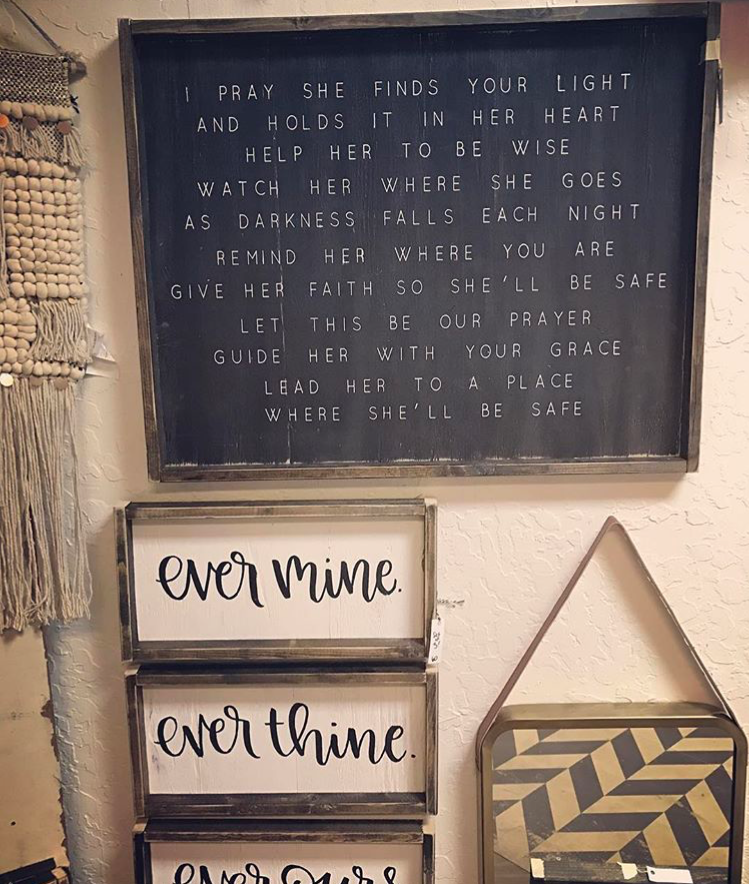 I PRAY SHE FINDS YOUR LIGHT
AND HOLDS IT IN HER HEART
HELP HER TO BE WISE
WATCH HER WHERE SHE GOES
AS DARKNESS FALLS EACH NIGHT
REMIND HER WHERE YOU ARE
GIVE HER FAITH SO SHE'LL BE SAFE
LET THIS BE OUR PRAYER
GUIDE HER WITH YOUR GRACE
LEAD HER TO A PLACE
WHERE SHE'LL BE SAFE
ever mine.
ever thine.
ever ours